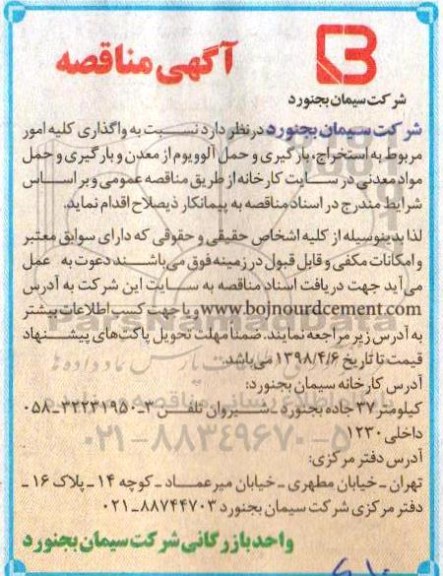 آگهی مناقصه
شرکت سیمان بجنورد
شرکت سیمان بجنورد در نظر دارد نسبت به واگذاری کلیه امور
مربوط به استخراج، بارگیری و حمل آلوویوم از معدن و بارگیری و حمل
مواد معدنی در سایت کارخانه از طریق مناقصه عمومی و بر اساس
شرایط مندرج در اسناد مناقصه به پیمانکار ذیصلاح اقدام نماید.
لذا بدینوسیله از کلیه اشخاص حقیقی و حقوقی که دارای سوابق معتبر
و امکانات مکفی و قابل قبول در زمینه فوق می‌باشند دعوت به عمل
می آید جهت دریافت اسناد مناقصه به سایت این شرکت به آدرس
www.bojnourdcement.com و یا جهت کسب اطلاعات بیشتر
به آدرس زیر مراجعه نمایند. ضمنا مهلت تحویل پاکت‌های پیشنهاد
قیمت تا تاریخ ۱۳۹۸/۴/۶ می‌باشد.
آدرس کارخانه سیمان بجنورد:
کیلومتر ۳۷ جاده بجنورد - شیروان تلفن ۳-۳۲۲۳۱۹۵۰-۰۵۸
داخلی ۱۲۳۰
۰۲۱-۸۸۳۴۹۶۷۰-۵
آدرس دفتر مرکزی:
تهران - خیابان مطهری - خیابان میرعماد - کوچه ۱۴ - پلاک ۱۶ -
دفتر مرکزی شرکت سیمان بجنورد ۸۸۷۴۴۷۰۳-۰۲۱
واحد بازرگانی شرکت سیمان بجنورد